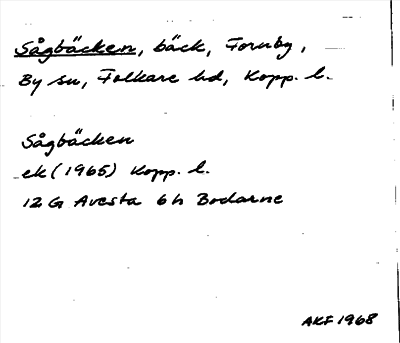 Sågbäcken, bäck, Fornby,
By sn, Folkare hd, Kopp. l.
Sågbäcken
ek (1965) Kopp. l.
12 G Avesta 6 h Bodarne
AKF 1968